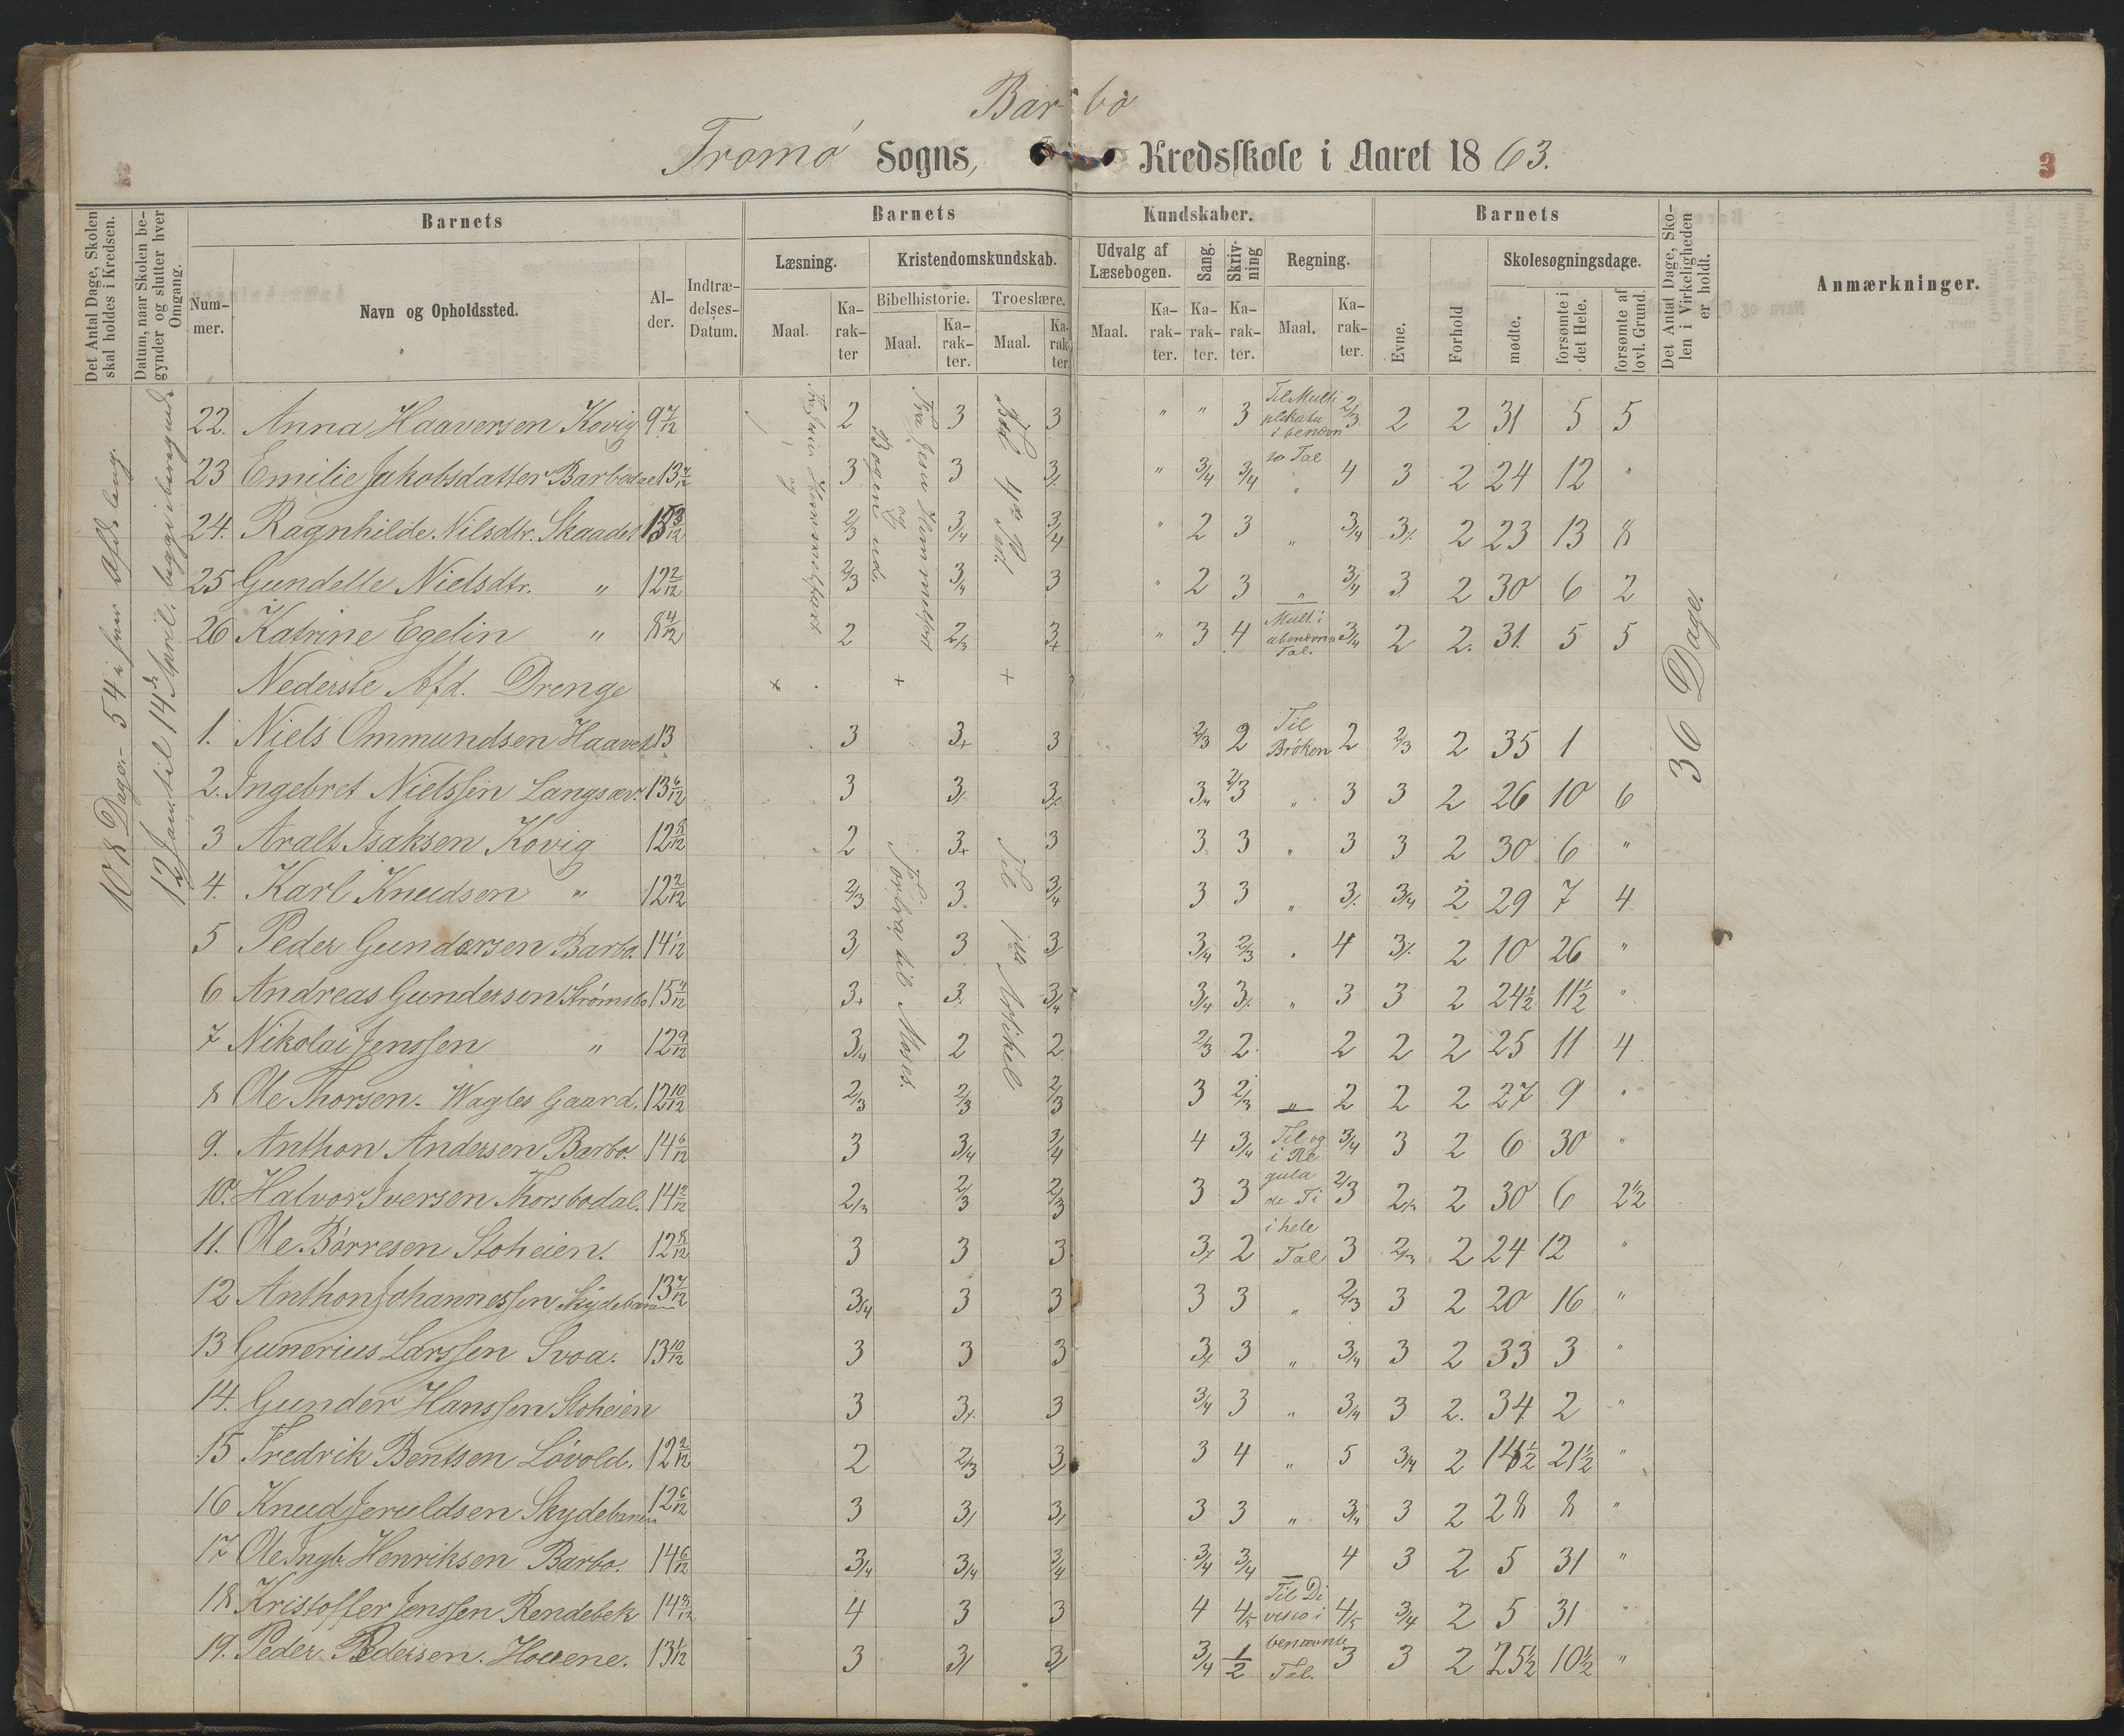 Barbo
Tromø Sogns, Kredsskole i Aaret 1863.
2
3
Det Antal Dage, Skolen skal holdes i Kredsen.
Datum, naar Skolen begynder og slutter hver Omgang.
Barnets
Barnets
Kundskaber.
Barnets
Det Antal Dage, Skolen i Virkeligheden er holdt.
Anmærkninger.
Nummer.
Navn og Opholdssted.
Alder.
Indtrædelses-Datum.
Læsning.
Kristendomskundskab.
Udvalg af Læsebogen.
Sang.
Skrivning
Regning.
Evne.
Forhold
Skolesøgningsdage.
Maal.
Karakter
Bibelhistorie.
Troeslære.
Maal.
Karakter.
Maal.
Karakter
Maal.
Karakter.
Karakter.
Karakter.
Maal.
Karakter.
mødte.
forsømte i det Hele.
forsømte af lovl. Grund.
108 Dage - 54 i hver Afdeling.
12 Jan. til 14de April, begge iberegnede
Bogen ud.
Fra Jesu Himmelfart
Til 4de Part.
Forfra til Moses.
Til 1ste Artikel
36 Dage.
22. Anna Haaversen Kovig 9 7/12 2 3 3 " " 3 Til Multiplikatu i benævn 2/3 2 2 31 5 5
23 Emilie Jakobsdatter Barbodal 13 7/12 3 3 3/. " 3/4 3/4 Tal 4 3 2 24 12 "
24. Ragnhilde Nilsdtr. Skaadel 13 3/12 2/3 3/4 3/4 " 2 3 " 3/4 3/. 2 23 13 8
25 Gundelle Nielsdtr. " 12 2/12 2/3 3/4 3 " 2 3 " 3/4 3 2 30 6 2
26 Katrine Egelin " 8 4/12 2 2/3 3+ " 3 4 Mult. i ubenævnte Tal. 3/4 2 2. 31. 5 5
Nederste Afd. Drenge + + +
1. Niels Ommundsen Haavet 13 3 3+ 3 2/3 2 Til Brøken 2 2/3 2 35 1
2. Ingebret Nielssen Langsæv. 13 6/12 3 3/. 3/. 3/4 2/3 " 3 3 2 26 10 6
3 Aralt Isaksen Kovig 12 8/12 2 3+ 3 3 3 " 3 3 2 30 6 "
4. Karl Knudsen " 12 2/12 2/3 3. 3/4 3 3 " 3/. 3/4 2 29 7 4
5 Peder Gundersen Barbo. 14 1/12 3/ 3 3/ 3/4 2/3 " 4 3/. 2 10 26 "
6 Andreas Gundersen Strømsbo 15 4/12 3+ 3/. 3/4 3/4 3/. " 3 3 2 24 1/2 11 1/2 "
7 Nikolai Jenssen " 12 9/12 3/4 2 2 2/3 2 2 2 2 25 11 4
8 Ole Thorsen. Wagles Gaard. 12 10/12 2/3 2/3 2/3 3 2/3 " 2 2 2 27 9 "
9. Anthon Andersen Barbo. 14 6/12 3 3/4 3/4 4 3/4 Til og i Re 3/4 3 2 6 30 "
10. Halvor Iversen Thorsbodal. 14 2/12 2/3 2/3 2/3 3 3 gula de Ti 2/3 2/3 2 30 6 2 1/2
11. Ole Børresen Stoheien. 12 8/12 3 3 3 3/. 2 i hele Tal 3 2/3 2 24 12 "
12 Anthon Johannessen Skydebanen 13 7/12 3/4 3 3 3 3 " 2/3 3 2 20 16 "
13 Gunerius Larssen Svoa. 13 10/12 3 3 3 3/. 3 " 3/4 3 2 33 3 "
14. Gunder Hanssen Stoheien 3 3/. 3 3/4 3 " 3/4 3 2. 34 2 "
15 Fredrik Bentsen Løvold. 12 2/12 2 2/3 3/ 3 4 " 5 3/4 2 14 1/2 21 1/2 "
16 Knud Jeruldsen Skydebanen 12 6/12 3 3/ 3/ 3 3 " 3/4 3 2 28 8 "
17 Ole Ingb. Henriksen Barbo. 14 6/12 3/4 3/4 3/4 3/4 3/4 4 3 2 5 31 "
18 Kristoffer Jenssen Rendebek 14 8/12 4 3 3 4 4/5 Til Divisio i 4/5 3/4 2 5 31 "
19. Peder Pedersen. Houene. 13 1/12 3 3/ 3/ 3/4 1/2 benævnte Tal. 3 3 2 25 1/2 10 1/2 "